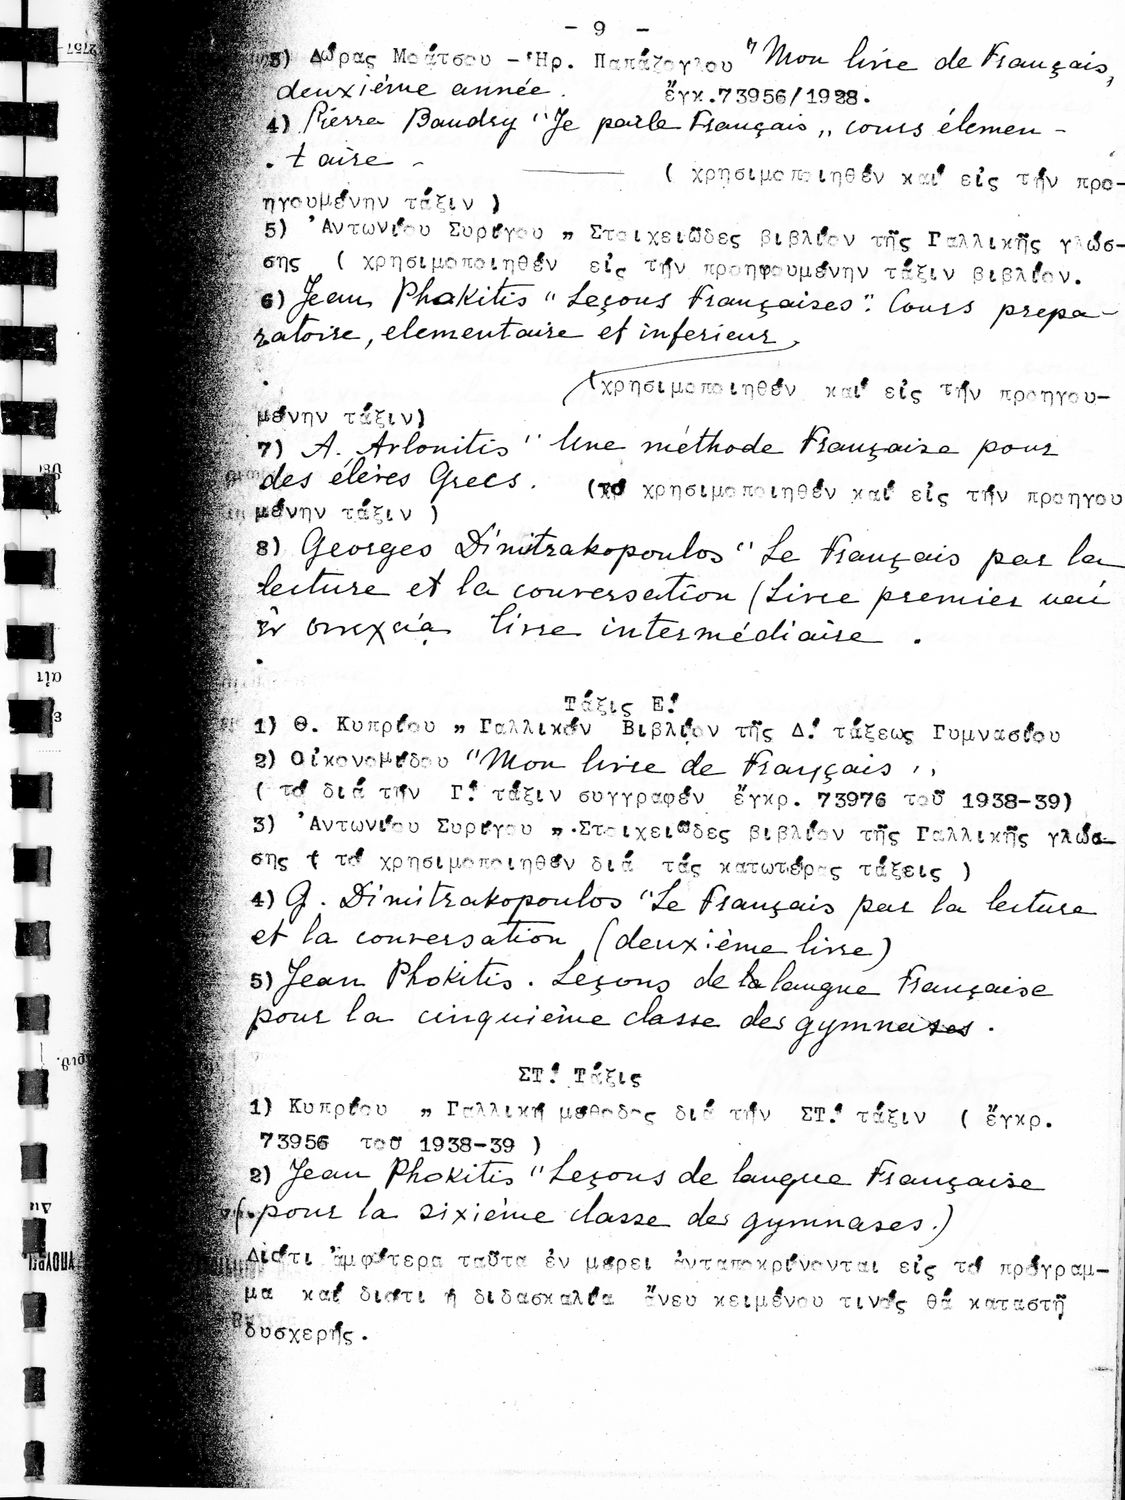 - 9 -
3) Δώρας Μοάτσου - Ἡρ. Παπάζογλου "Mon livre de Français,
deuxième année. ἔγκ.73956/1928.
4) Pierre Baudry "Je parle Français„ cours élémen-
taire - ( χρησιμοποιηθέν καί εἰς τήν προ-
ηγουμένην τάξιν )
5) Ἀντωνίου Συρίγου „ Στοιχειῶδες βιβλίον τῆς Γαλλικῆς γλώσ-
σης ( χρησιμοποιηθέν εἰς τήν προηφουμένην τάξιν βιβλίον.
6) Jean Phokitis "Leçons Françaises". Cours prepa-
ratoire, elementaire et inferieur,
(χρησιμοποιηθέν καί εἰς τήν προηγου-
μένην τάξιν)
7) A. Arlonitis " Une méthode Française pour
des élèves Grecs. (τό χρησιμοποιηθέν καί εἰς τήν προηγου
μένην τάξιν )
8) Georges Dimitrakopoulos "Le Français par la
lecture et la conversation (Livre premier καί
ἐν συνεχείᾳ livre intermédiaire .
Τάξις Ε!
1) Θ. Κυπρίου „ Γαλλικόν Βιβλίον τῆς Δ! τάξεως Γυμνασίου
2) Οἰκονομίδου "Mon livre de Français ,,
( τό διά τήν Γ! τάξιν συγγραφέν ἔγκρ. 73976 τοῦ 1938-39)
3) Ἀντωνίου Συρίγου „.Στοιχειῶδες βιβλίον τῆς Γαλλικῆς γλώσ-
σης ( τό χρησιμοποιηθέν διά τάς κατωτέρας τάξεις )
4) G. Dimitrakopoulos "Le Français par la lecture
et la conversation (deuxième livre)
5) Jean Phokitis. Leçons de la langue Française
pour la cinquième classe des gymnases.
ΣΤ! Τάξις
1) Κυπρίου „ Γαλλική μέθοδος διά τήν ΣΤ! τάξιν ( ἔγκρ.
73956 τοῦ 1938-39 )
2) Jean Phokitis "Leçons de langue Française
(pour la sixième classe des gymnases.)
Διότι ἀμφότερα ταῦτα ἐν μέρει ἀνταποκρίνονται εἰς τό πρόγραμ-
μα καί διότι ἡ διδασκαλία ἄνευ κειμένου τινός θά καταστῇ
δυσχερής.